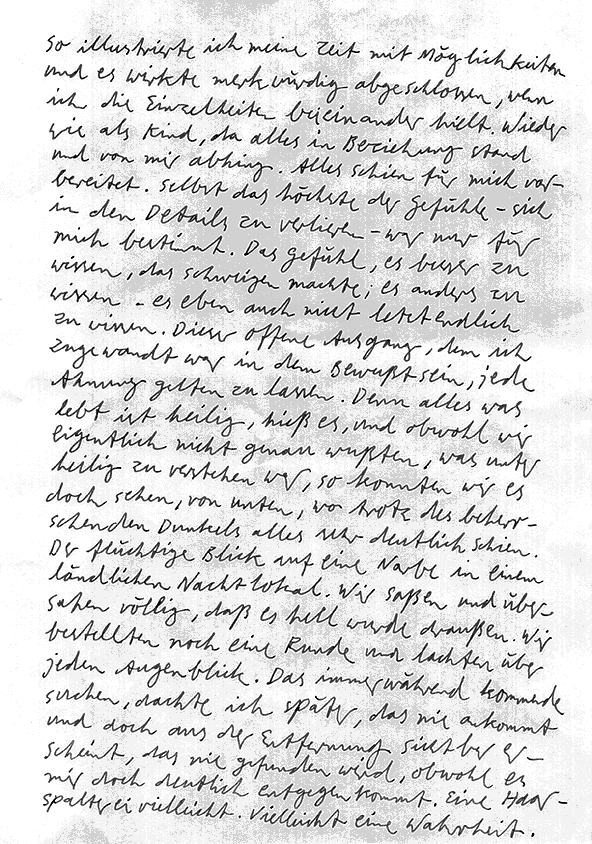 So illustrierte ich meine Zeit mit Möglichkeiten
und es wirkte merkwürdig abgeschlossen, wenn
ich die Einzelheiten beieinander hielt. Wieder
wie als Kind, da alles in Beziehung stand
und von mir abhing. Alles schien für mich vor-
bereitet. Selbst das höchste der Gefühle - sich
in den Details zu verlieren - war nur für
mich bestimmt. Das Gefühl, es besser zu
wissen, das schweigen machte; es anders zu
wissen - es eben auch nicht letztendlich
zu wissen. Dieser offene Ausgang, dem ich
zugewandt war in dem Bewußtsein, jede
Ahnung gelten zu lassen. Denn alles was
lebt ist heilig, hieß es, und obwohl wir
eigentlich nicht genau wußten, was unter
heilig zu verstehen war, so konnten wir es
doch sehen, von unten, wo trotz des beherr-
schenden Dunkels alles sehr deutlich schien.
Der flüchtige Blick auf eine Narbe in einem
ländlichen Nachtlokal. Wir saßen und über-
sahen völlig, daß es hell wurde draußen. Wir
bestellten noch eine Runde und lachten über
jeden Augenblick. Das immerwährend kommende
suchen, dachte ich später, das nie ankommt
und doch aus der Entfernung sichtbar er-
scheint, das nie gefunden wird, obwohl es
mir doch deutlich entgegen kommt. Eine Haar-
spalterei vielleicht. Vielleicht eine Wahrheit.